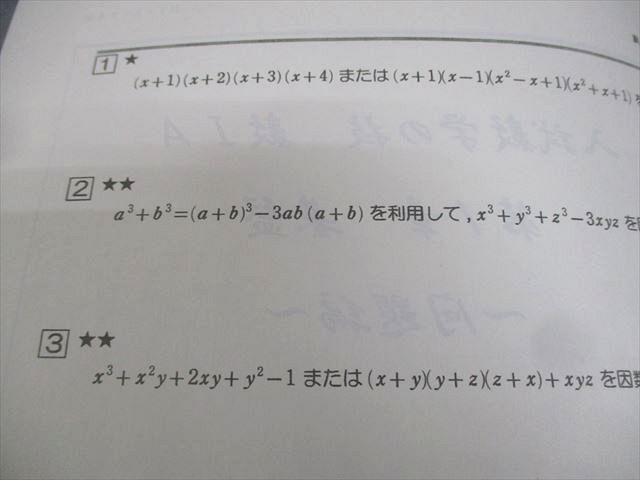 1 ★
(x+1)(x+2)(x+3)(x+4) または (x+1)(x−1)(x²−x+1)(x²+x+1) を
2 ★★
a³+b³=(a+b)³−3ab(a+b) を利用して, x³+y³+z³−3xyz を
3 ★★
x³+x²y+2xy+y²−1 または (x+y)(y+z)(z+x)+xyz を因数